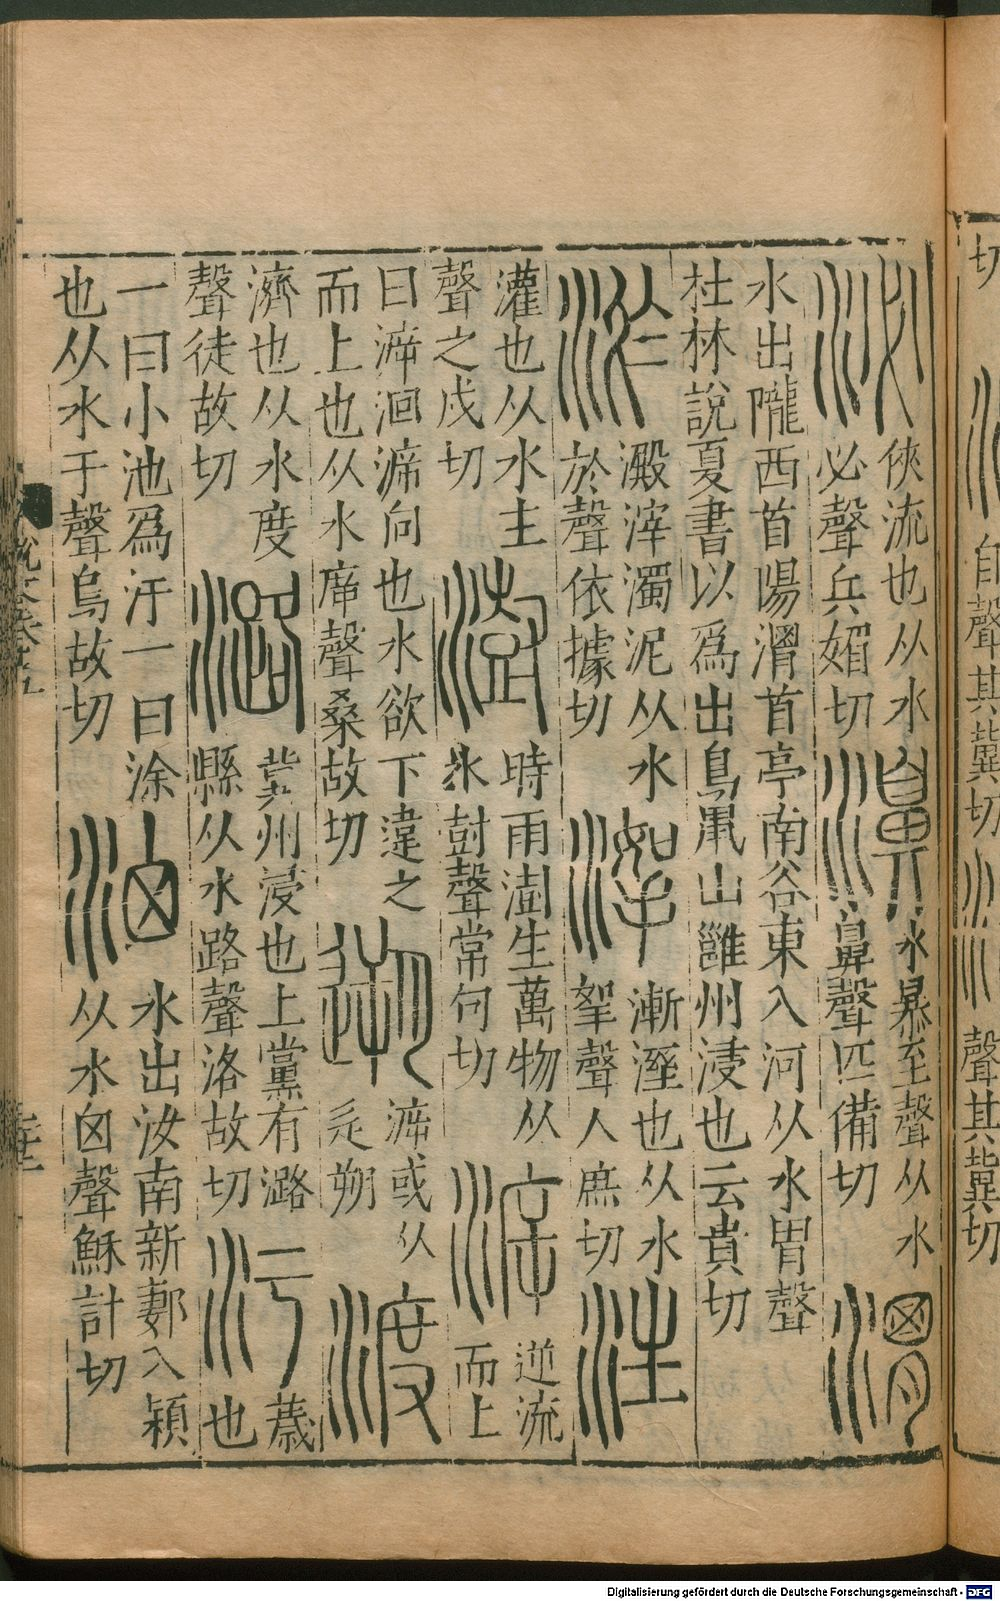 切
自聲其冀切
聲其冀切
泌
俠流也从水
必聲兵媚切
濞
水暴至聲从水
鼻聲匹備切
渭
水出隴西首陽渭首亭南谷東入河从水胃聲
杜林說夏書以爲出鳥鼠山雝州浸也云貴切
淤
澱滓濁泥从水
於聲依據切
漸溼也从水
挐聲人庶切
注
灌也从水主
聲之戍切
澍
時雨澍生萬物从
水尌聲常句切
㴑
逆流
而上
曰㴑洄㴑向也水欲下違之
而上也从水㡿聲桑故切
遡
㴑或从
辵朔
渡
濟也从水度
聲徒故切
潞
冀州浸也上黨有潞
縣从水路聲洛故切
汙
薉
也
一曰小池爲汙一曰涂
也从水于聲烏故切
水出汝南新郪入潁
从水囟聲穌計切
Digitalisierung gefördert durch die Deutsche Forschungsgemeinschaft - DFG